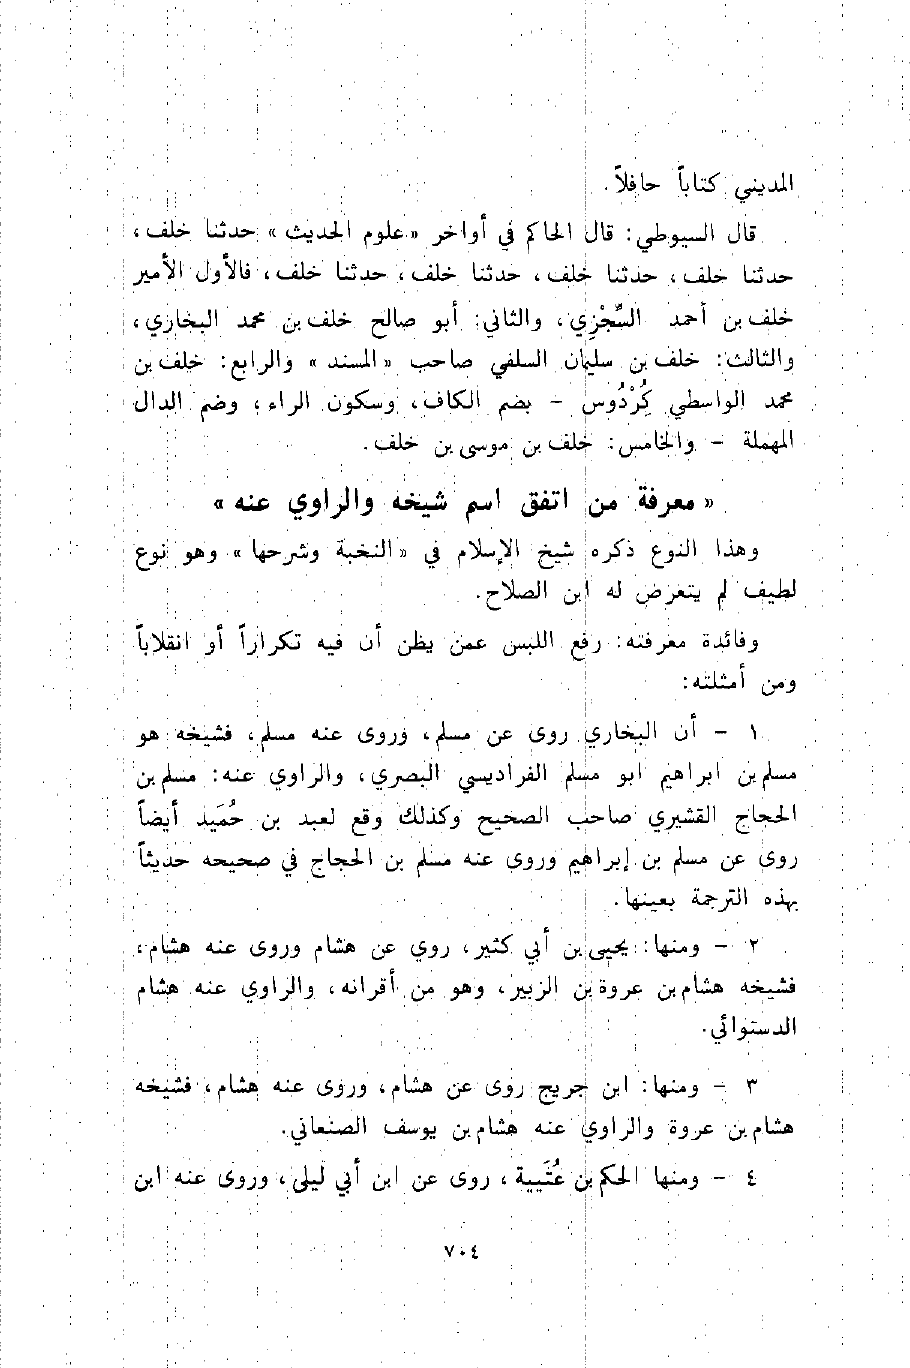 المديني كتاباً حافلاً.
قال السيوطي: قال الحاكم في أواخر «علوم الحديث» حدثنا خلف،
حدثنا خلف، حدثنا خلف، حدثنا خلف، حدثنا خلف، فالأول الأمير
خلف بن أحمد السِّجْزِي، والثاني: أبو صالح خلف بن محمد البخاري،
والثالث: خلف بن سليمان السلفي صاحب «المسند» والرابع: خلف بن
محمد الواسطي كُرْدُوس - بضم الكاف، وسكون الراء، وضم الدال
المهملة - والخامس: خلف بن موسى بن خلف.
«معرفة من اتفق اسم شيخه والراوي عنه»
وهذا النوع ذكره شيخ الإسلام في «النخبة وشرحها» وهو نوع
لطيف لم يتعرض له ابن الصلاح.
وفائدة معرفته: رفع اللبس عمن يظن أن فيه تكراراً أو انقلاباً
ومن أمثلته:
١ - أن البخاري روى عن مسلم، وروى عنه مسلم، فشيخه هو
مسلم بن ابراهيم ابو مسلم الفراديسي البصري، والراوي عنه: مسلم بن
الحجاج القشيري صاحب الصحيح وكذلك وقع لعبد بن حُمَيد أيضاً
روى عن مسلم بن إبراهيم وروى عنه مسلم بن الحجاج في صحيحه حديثاً
بهذه الترجمة بعينها.
٢ - ومنها: يحيى بن أبي كثير، روي عن هشام وروى عنه هشام،
فشيخه هشام بن عروة بن الزبير، وهو من أقرانه، والراوي عنه هشام
الدستوائي.
٣ - ومنها: ابن جريج روى عن هشام، وروى عنه هشام، فشيخه
هشام بن عروة والراوي عنه هشام بن يوسف الصنعاني.
٤ - ومنها الحكم بن عُتَيبة، روى عن ابن أبي ليلى، وروى عنه ابن
٧٠٤